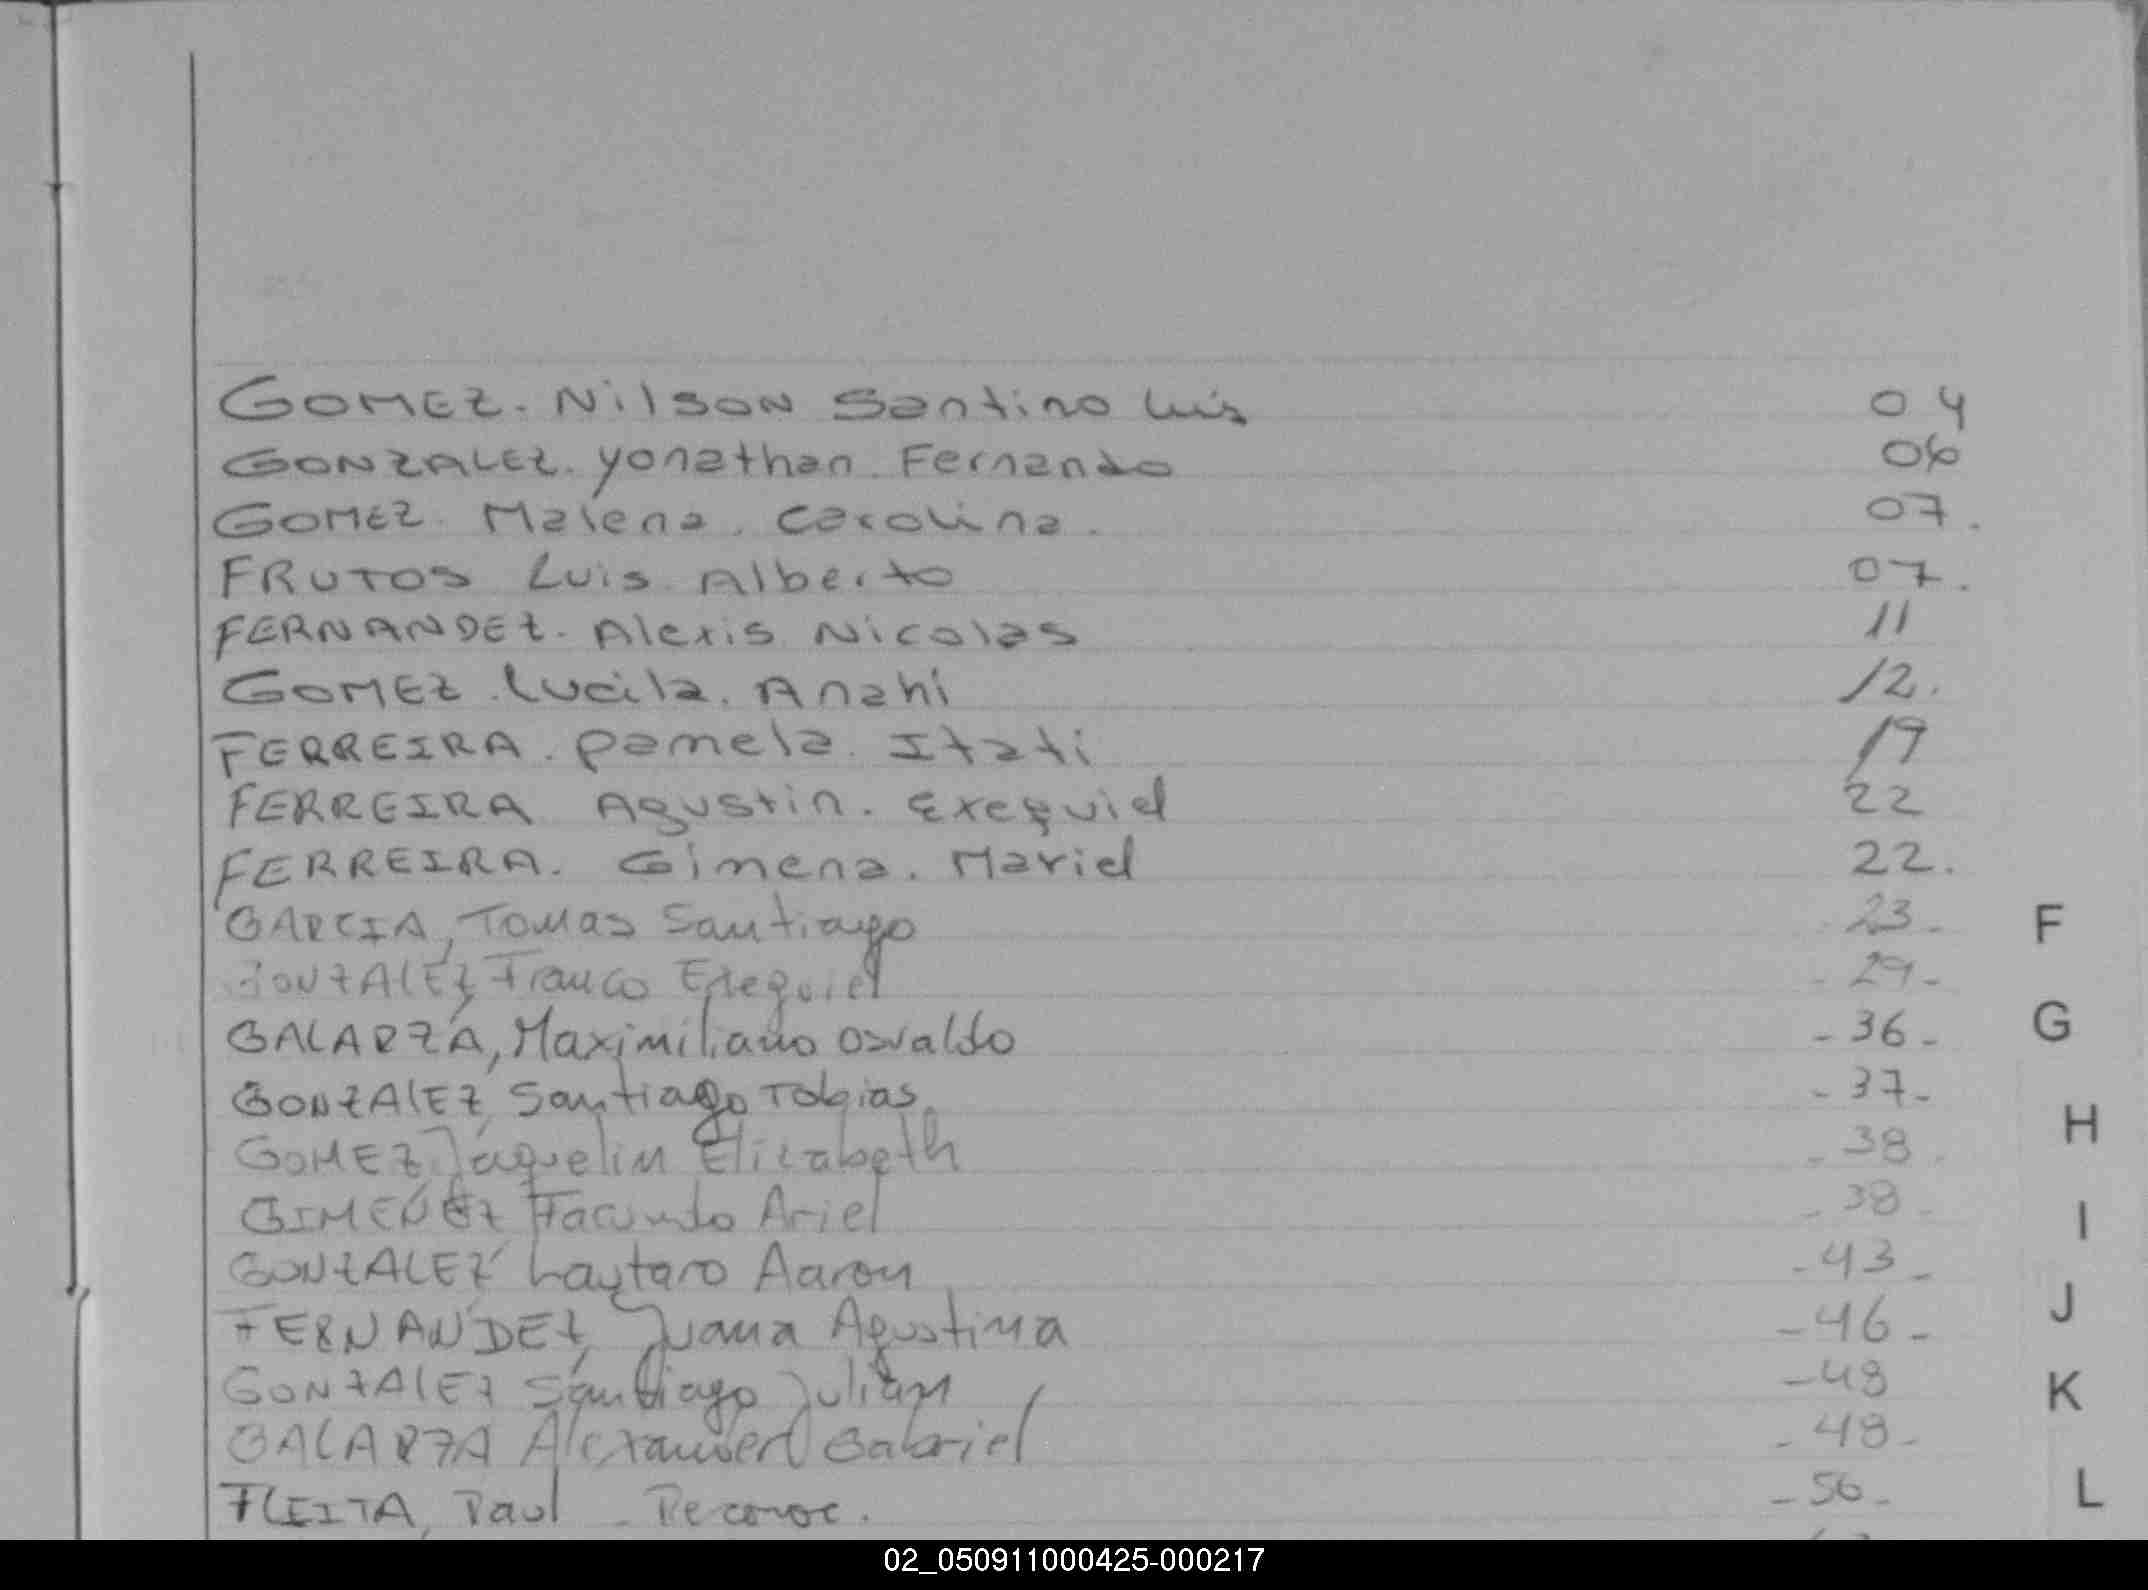 GOMEZ. Nilson Santino Luis 04
GONZALEZ. Yonathan. Fernando 06
GOMEZ. Malena. Carolina. 07.
FRUTOS Luis. Alberto 07.
FERNANDEZ. Alexis Nicolas 11
GOMEZ. Lucila. Anahi 12.
FERREIRA. Pamela. Itati 19
FERREIRA Agustin. Exequiel 22
FERREIRA. Gimena. Mariel 22.
GARCIA, Tomas Santiago 23- F
GONZALEZ, Franco Exequiel - 29-
GALARZA, Maximiliano Osvaldo - 36- G
GONZALEZ, Santiago Tobias - 37-
GOMEZ, Jaquelin Elizabeth - 38 H
GIMENEZ Facundo Ariel - 38- I
GONZALEZ Lautaro Aaron - 43-
FERNANDEZ, Juana Agustina - 46- J
GONZALEZ Santiago Julian - 48 K
GALARZA Alexander Gabriel - 48-
FLEITA, Paul - 56- L
02_050911000425-000217